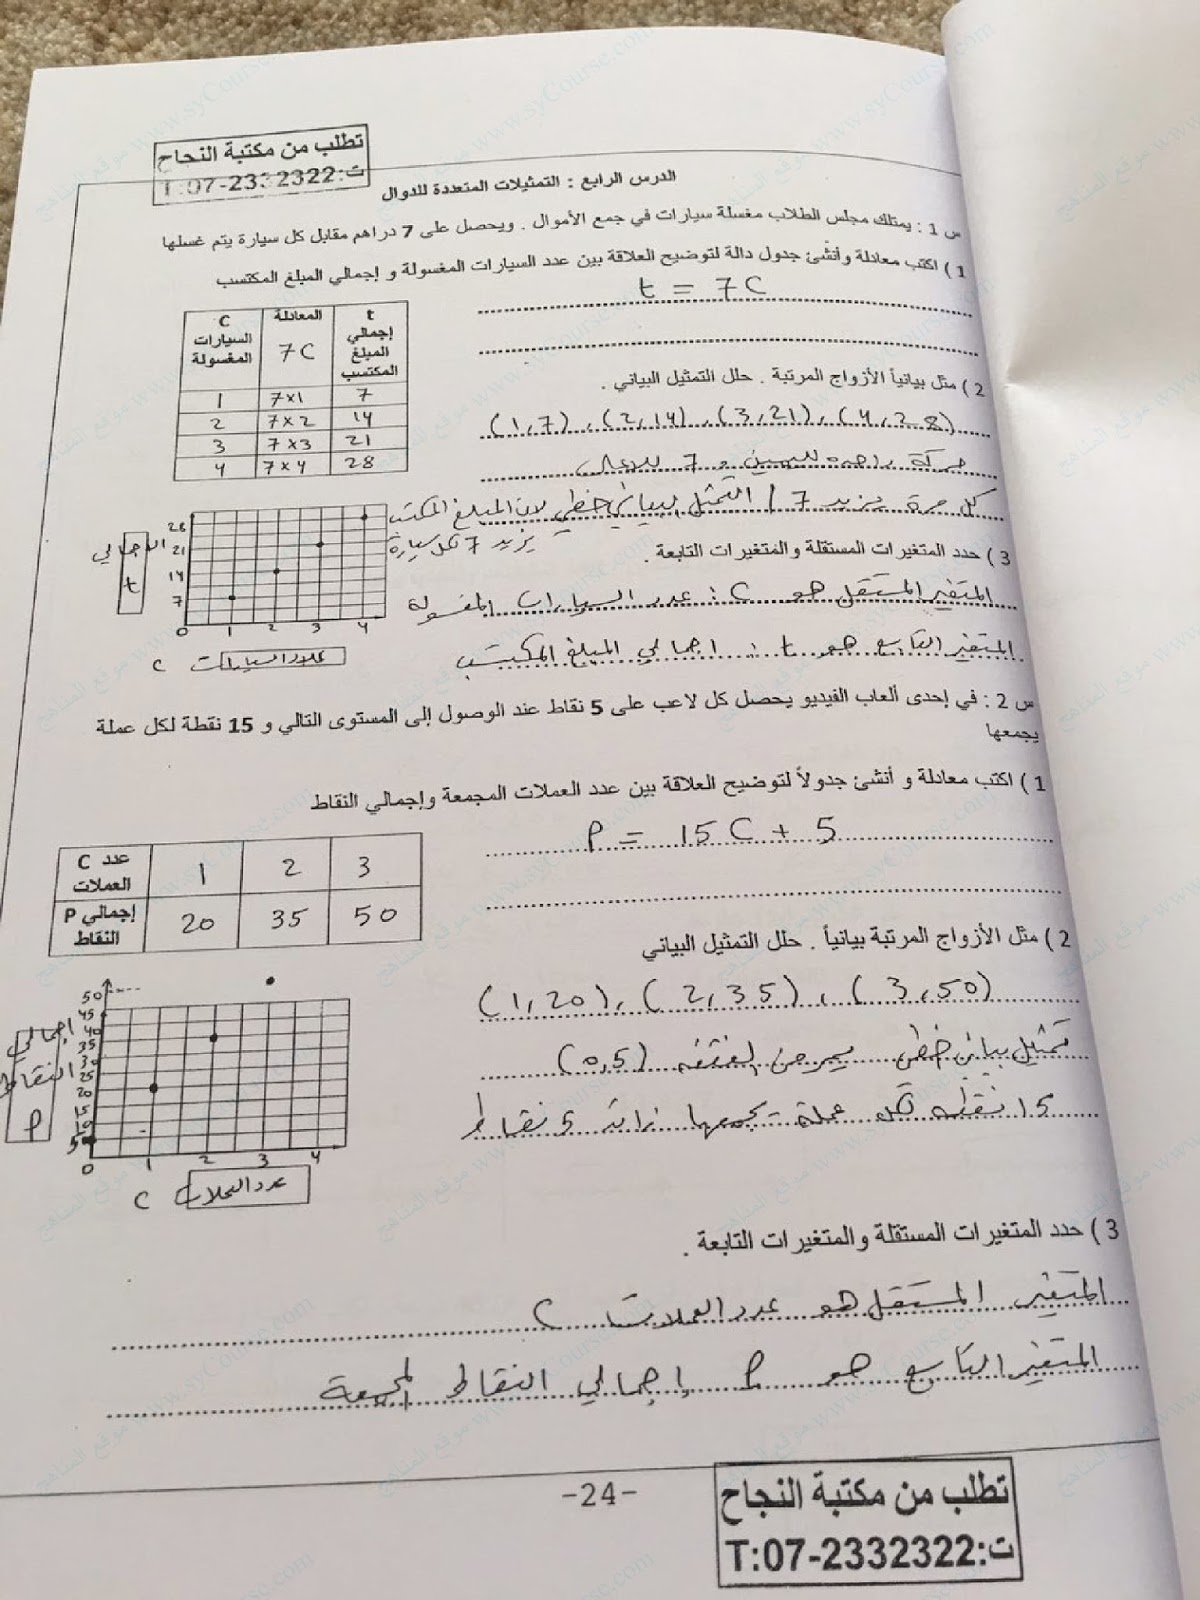 تطلب من مكتبة النجاح
ت:T:07-2332322
الدرس الرابع : التمثيلات المتعددة للدوال
س 1 : يمتلك مجلس الطلاب مغسلة سيارات في جمع الأموال . ويحصل على 7 دراهم مقابل كل سيارة يتم غسلها
1 ) اكتب معادلة وأنشئ جدول دالة لتوضيح العلاقة بين عدد السيارات المغسولة و إجمالي المبلغ المكتسب
t = 7C
C السيارات المغسولة | المعادلة 7C | t إجمالي المبلغ المكتسب
1 | 7×1 | 7
2 | 7×2 | 14
3 | 7×3 | 21
4 | 7×4 | 28
2 ) مثل بيانياً الأزواج المرتبة . حلل التمثيل البياني .
(1,7) , (2,14) , (3,21) , (4,28)
حركة واحدة لليمين و 7 للأعلى
كل مرة يزيد 7 / التمثيل البياني خطي لان المبلغ المكتسب
يزيد 7 لكل سيارة
28
21
14
7
0 1 2 3 4
الاجمالي
t
C عدد السيارات
3 ) حدد المتغيرات المستقلة والمتغيرات التابعة .
المتغير المستقل هو C : عدد السيارات المغسولة
المتغير التابع هو t : اجمالي المبلغ المكتسب
س 2 : في إحدى ألعاب الفيديو يحصل كل لاعب على 5 نقاط عند الوصول إلى المستوى التالي و 15 نقطة لكل عملة
يجمعها
1 ) اكتب معادلة و أنشئ جدولاً لتوضيح العلاقة بين عدد العملات المجمعة وإجمالي النقاط
P = 15C + 5
C عدد العملات | 1 | 2 | 3
P إجمالي النقاط | 20 | 35 | 50
2 ) مثل الأزواج المرتبة بيانياً . حلل التمثيل البياني
(1,20) , (2,35) , (3,50)
تمثيل بياني خطي يمر من النقطة (0,5)
15 نقطة لكل عملة يجمعها زائد 5 نقاط
50
45
40
35
30
25
20
15
10
5
0 1 2 3 4
إجمالي
النقاط
P
C عدد العملات
3 ) حدد المتغيرات المستقلة والمتغيرات التابعة .
المتغير المستقل هو عدد العملات C
المتغير التابع هو P إجمالي النقاط المجمعة
-24-
تطلب من مكتبة النجاح
ت:T:07-2332322
موقع المناهج www.syCourse.com